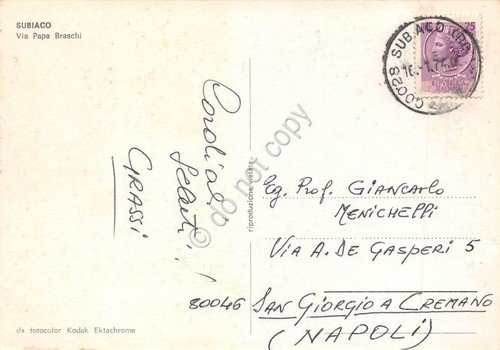 SUBIACO
Via Papa Braschi
Cordiali
Saluti!
GRASSI
riproduzione vietata
25
00028 SUBIACO (RM)
Eg. Prof. GIANCARLO
MENICHELLI
VIA A. DE GASPERI 5
80046 SAN GIORGIO A CREMANO
(NAPOLI)
da fotocolor Kodak Ektachrome
do not copy